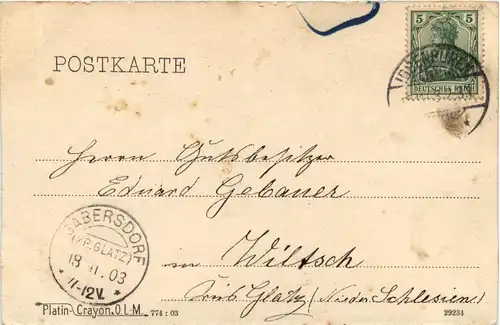 5 5
DEUTSCHES REICH
POSTKARTE
Herrn Gutsbesitzer
Eduard Gebauer
in Wiltsch
Kreis Glatz (Nieder Schlesien)
GABERSDORF
(KR. GLATZ)
18 11. 03
* 11-12V. *
Platin-Crayon. O.L.M. 774 : 03
29234